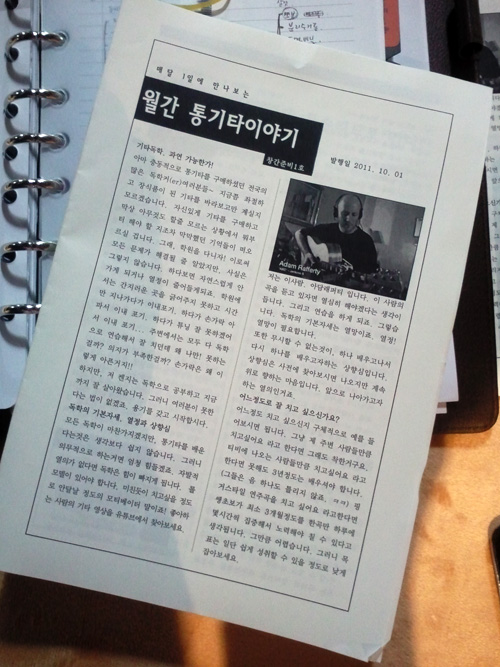 매달 1일에 만나보는
월간 통기타이야기
창간준비1호
발행일 2011. 10. 01
기타독학, 과연 가능한가!
아마 충동적으로 통기타를 구매하셨던 전국의
많은 독학커(er)여러분들~ 지금쯤 좌절하
고 장식품이 된 기타를 바라보고만 계실지
모르겠습니다. 자신있게 기타를 구매하고
막상 아무것도 할줄 모르는 상황에서 뭐부
터 해야 할 지조차 막막했던 기억들이 떠오
르실 겁니다. 그래, 학원을 다니자! 이로써
모든 문제가 해결될 줄 알았지만, 사실은
그렇지 않습니다. 하다보면 자연스럽게 안
가게 되거나 열정이 줄어들게되죠. 학원에
서는 간지러운 곳을 긁어주지 못하고 시간
만 지나가다가 이내포기, 하다가 손가락 아
파서 이내 포기, 하다가 튜닝 잘 못하겠어
서 이내 포기... 주변에서는 모두 다 독학
으로 연습해서 잘 치던데 왜 나만! 못하는
걸까? 의지가 부족한걸까? 손가락은 왜 이
렇게 아픈거지!!
하지만, 저 젠지는 독학으로 공부하고 지금
까지 잘 살아왔습니다. 그러니 여러분이 못한
다는 법이 없겠죠. 용기를 갖고 시작합시다.
독학의 기본자세, 열정과 상향심
모든 독학이 마찬가지겠지만, 통기타를 배운
다는것은 생각보다 쉽지 않습니다. 그러니
의무적으로 하는거면 엄청 힘들겠죠. 자발적
열의가 없다면 독학은 힘이 빠지게 됩니다. 롤
모델이 있어야 합니다. 미친듯이 치고싶을 정도
로 안달날 정도의 모티베이터 말이죠! 좋아하
는 사람의 기타 영상을 유튜브에서 찾아보세요.
Adam Rafferty
저는 이사람, 아담래퍼티 입니다. 이 사람의
곡을 듣고 있자면 열심히 해야겠다는 생각이
듭니다. 그리고 연습을 하게 되죠. 그렇습
니다. 독학의 기본자세는 열망이죠. 열정!
열망이 필요합니다.
또한 무시할 수 없는것이, 하나 배우고나서
다시 하나를 배우고자하는 상향심입니다.
상향심은 사전에 찾아보시면 나오지만 계속
위로 향하는 마음입니다. 앞으로 나아가고자
하는 열의인거죠.
어느정도로 잘 치고 싶으신가요?
어느정도 치고 싶으신지 구체적으로 예를 들
어보시면 됩니다. 그냥 제 주변 사람들만큼
치고싶어요 라고 한다면 그래도 착한거구요.
티비에 나오는 사람들만큼 치고싶어요 라고
한다면 못해도 3년정도는 배우셔야 합니다.
(그들은 음 하나도 틀리지 않죠. ㅋㅋ) 핑
거스타일 연주곡을 치고 싶어요 라고한다면
쌩초보가 최소 3개월정도를 한곡만 하루에
몇시간씩 집중해서 노력해야 칠 수 있다고
생각됩니다. 그만큼 어렵습니다. 그러니 목
표는 일단 쉽게 성취할 수 있을 정도로 낮게
잡아보세요.